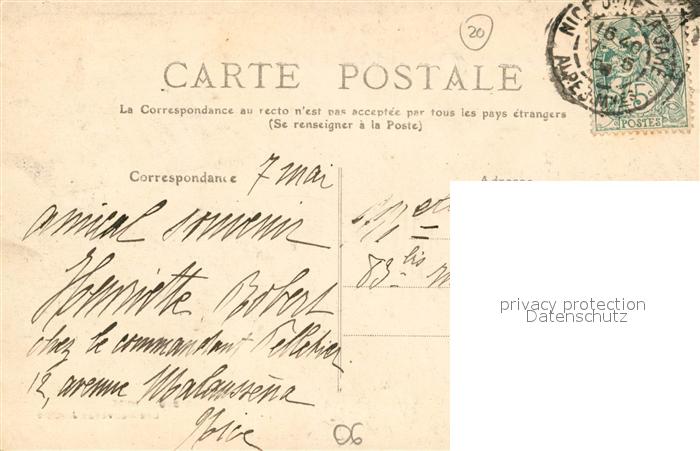 20
NICE
ALPES-MMES
5c
POSTES
CARTE POSTALE
La Correspondance au recto n'est pas acceptée par tous les pays étrangers
(Se renseigner à la Poste)
Correspondance
7 mai
amical souvenir
Henriette Robert
chez le commandant Pelletier
12, avenue Malausséna
Nice
06
Adresse
83 bis
privacy protection
Datenschutz